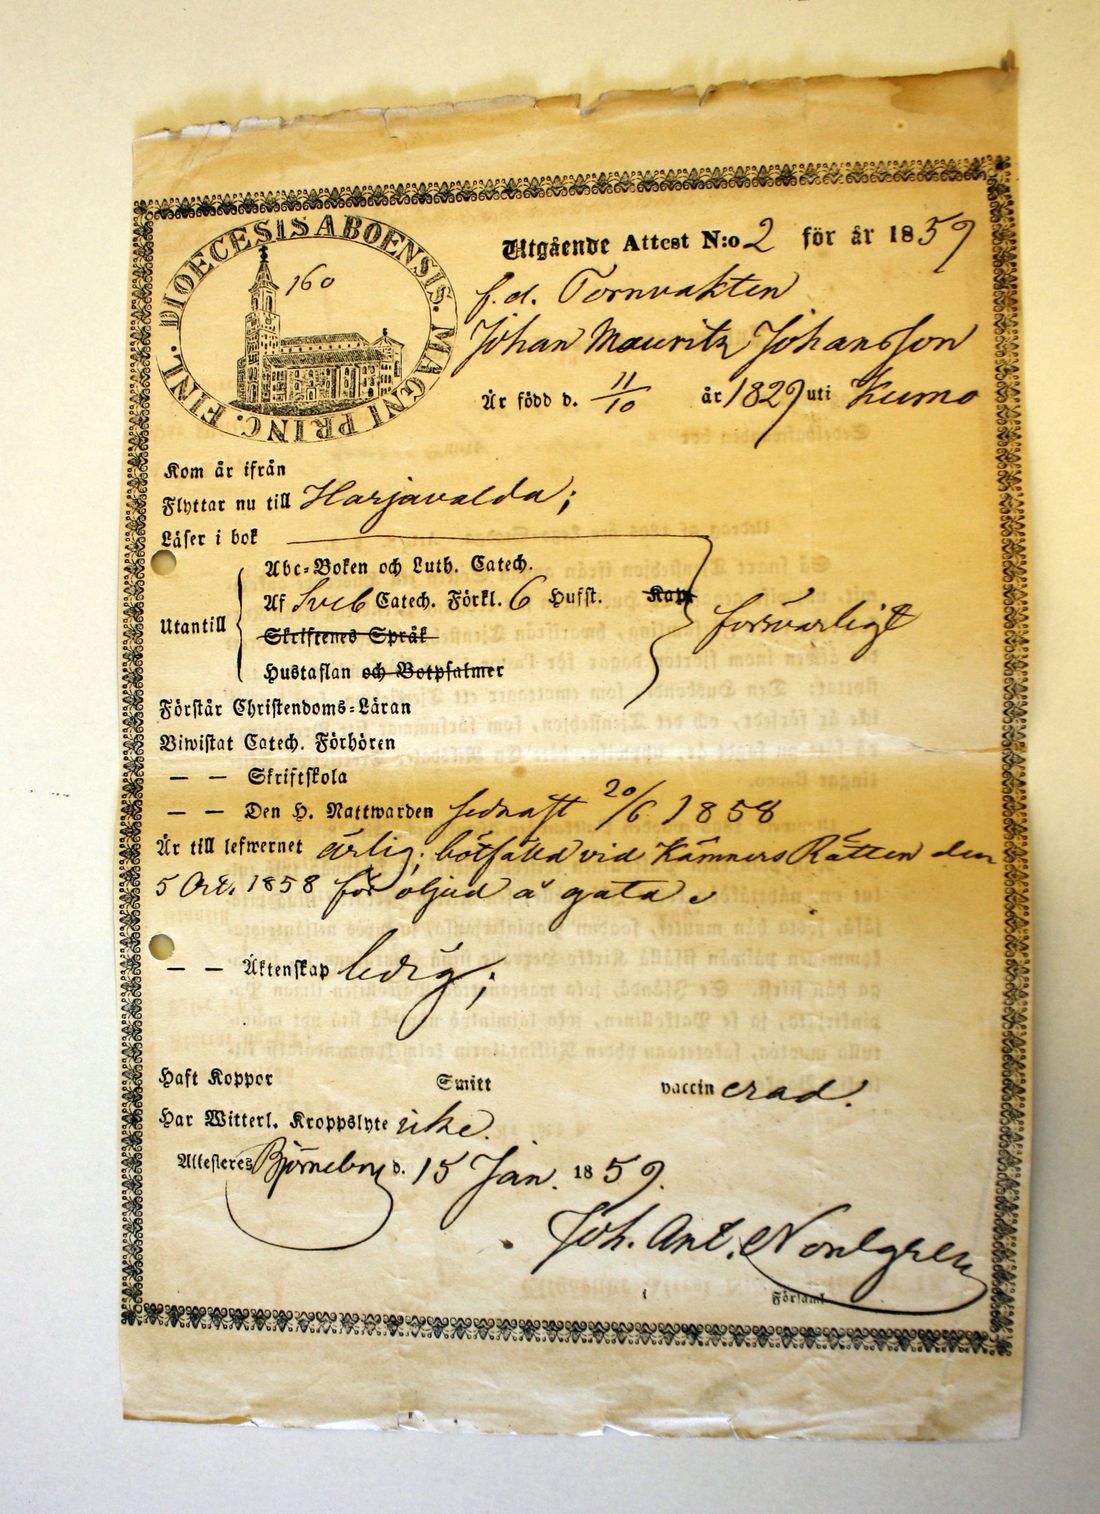 DIOECESIS ABOENSIS. MAGNI PRINC. FINL.
160
Utgående Attest N:o 2 för år 1859
f.d. Tornvakten
Johan Mauritz Johansson
Är född d. 11/10 år 1829 uti Kumo
Kom år ifrån
Flyttar nu till Harjavalda;
Läser i bok
Utantill
Abc-Boken och Luth. Catech.
Af Sveb Catech. Förkl. 6 Hufst. Kap.
Skriftenes Språk
Hustaflan och Botpsalmer
försvarligt
Förstår Christendoms-Läran
Biwistat Catech. Förhören
— — Skriftskola
— — Den H. Nattwarden sednast 20/6 1858
Är till lefwernet ärlig; bötfälld vid Kämners Rätten den
5 Oct. 1858 för oljud å gata.
— — Äktenskap ledig;
Haft Koppor Smitt vaccinerad.
Har Witterl. Kroppslyte icke.
Attesteres Björneborg d. 15 Jan. 1859.
Joh. Ant. Nordgren
Församl